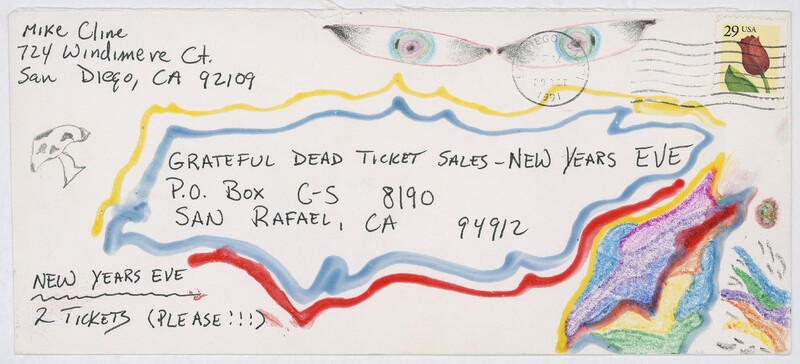 Mike Cline
724 Windimere Ct.
San Diego, CA 92109
29 USA
1991
GRATEFUL DEAD TICKET SALES - NEW YEARS EVE
P.O. Box C-S 8190
SAN RAFAEL, CA 94912
NEW YEARS EVE
2 TICKETS (PLEASE!!!)